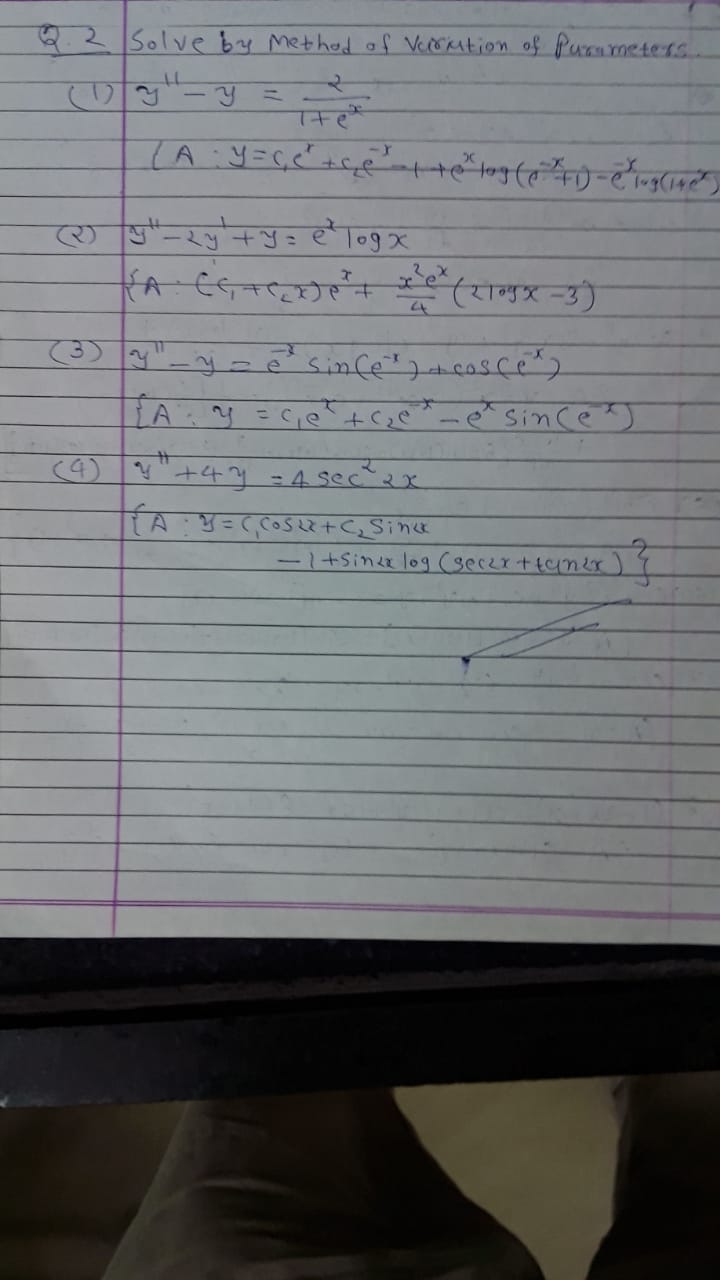 Q.2 Solve by Method of Variation of Parameters.
(1) y'' - y = 2/(1+e^x)
(A : y = c₁e^x + c₂e^-x - 1 + e^x log(e^-x+1) - e^-x log(1+e^x)
(2) y'' - 2y' + y = e^x log x
{A : (c₁ + c₂x)e^x + x²e^x/4 (2logx - 3)
(3) y'' - y = e^-x sin(e^-x) + cos(e^-x)
{A : y = c₁e^x + c₂e^-x - e^x sin(e^-x)
(4) y'' + 4y = 4 sec² 2x
{A : y = c₁cos2x + c₂ sin2x
- 1 + sin2x log(sec2x + tan2x) }